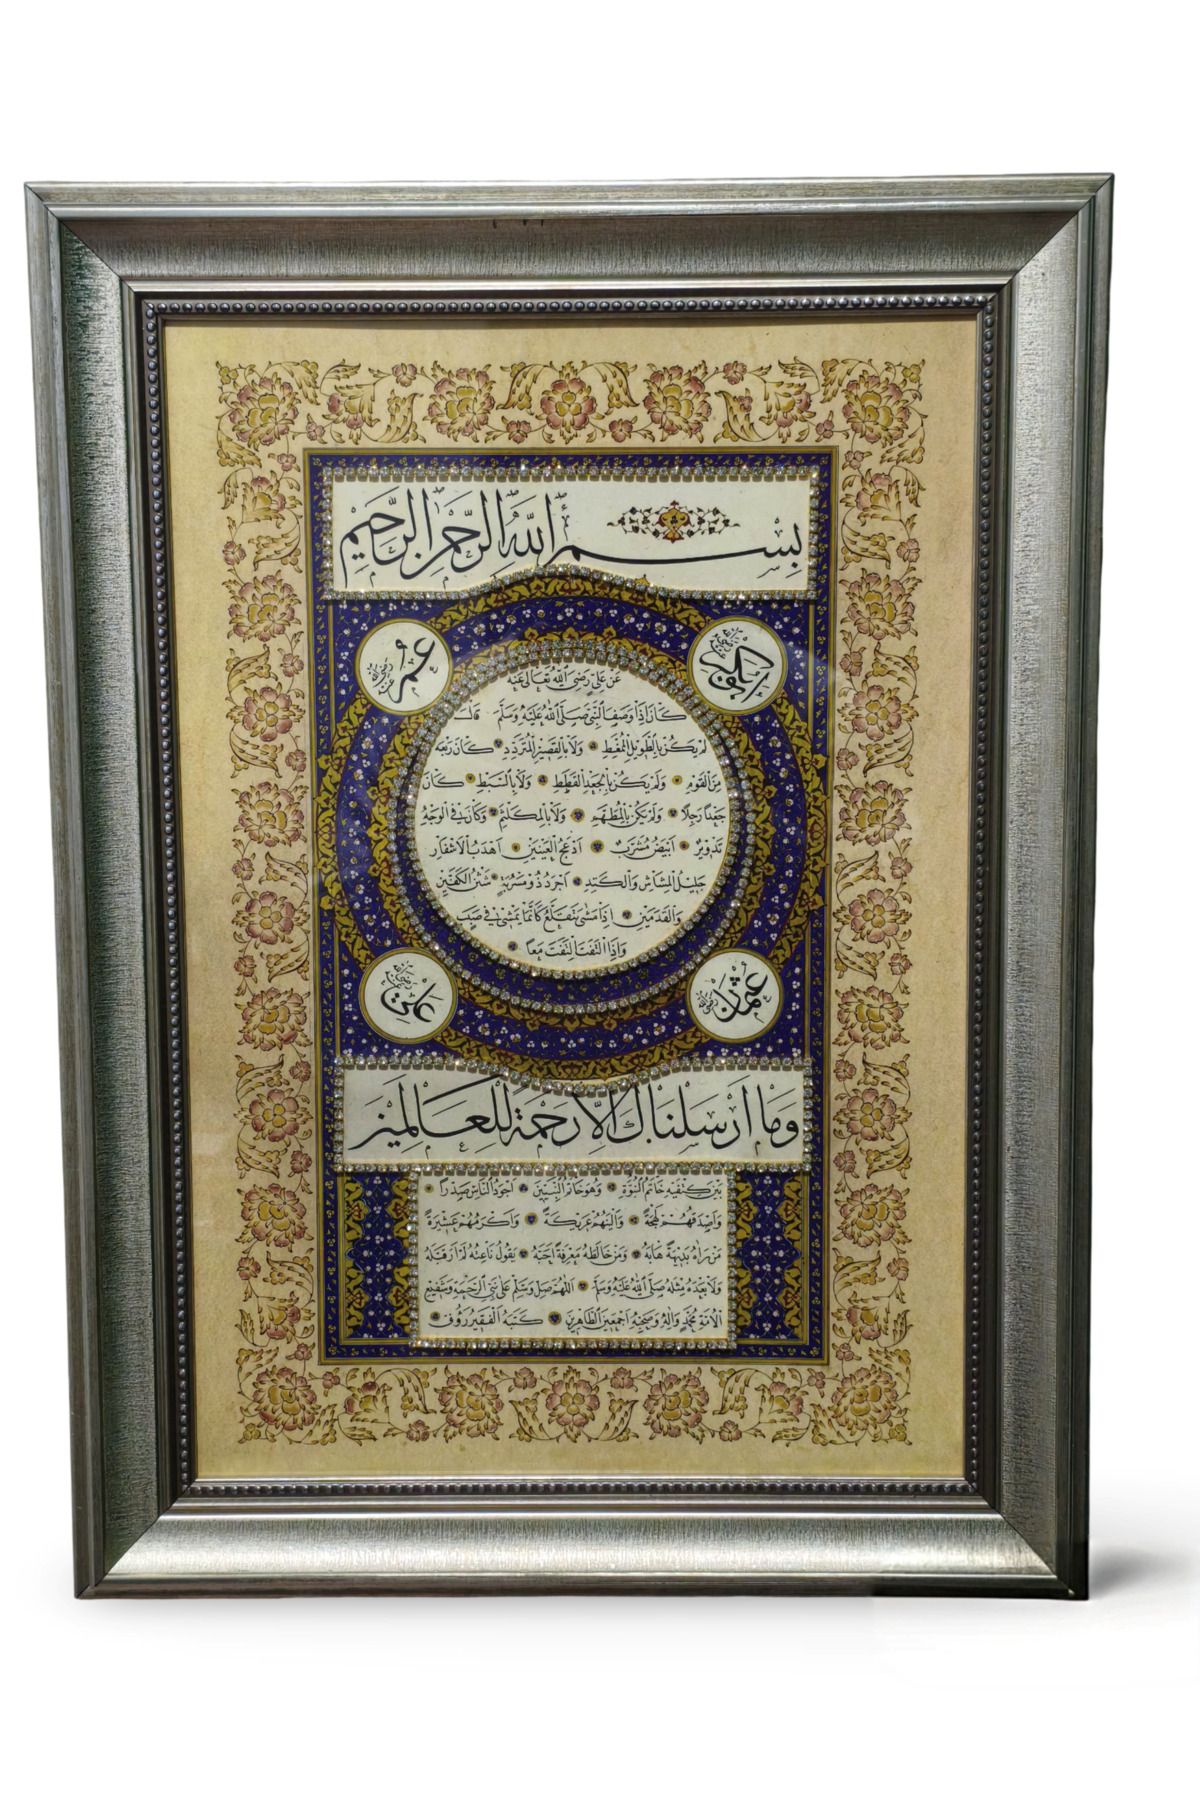 بِسْمِ اللهِ الرَّحْمٰنِ الرَّحِيْمِ
ابوبكر رضي الله عنه
عُمَر رضي الله عنه
عَنْ عَلِىٍّ رَضِىَ اللهُ تَعَالٰى عَنْهُ
كَانَ اِذَا وَصَفَ النَّبِىَّ صَلَّى اللهُ عَلَيْهِ وَسَلَّمَ قَالَ
لَمْ يَكُنْ بِالطَّوِيْلِ الْمُمَّغِطِ وَلَا بِالْقَصِيْرِ الْمُتَرَدِّدِ كَانَ رَبْعَةً
مِنَ الْقَوْمِ وَلَمْ يَكُنْ بِالْجَعْدِ الْقَطَطِ وَلَا بِالسَّبِطِ كَانَ
جَعْدًا رَجِلًا وَلَمْ يَكُنْ بِالْمُطَهَّمِ وَلَا بِالْمُكَلْثَمِ وَكَانَ فِى الْوَجْهِ
تَدْوِيْرٌ اَبْيَضُ مُشْرَبٌ اَدْعَجُ الْعَيْنَيْنِ اَهْدَبُ الْاَشْفَارِ
جَلِيْلُ الْمُشَاشِ وَالْكَتَدِ اَجْرَدُ ذُوْ مَسْرُبَةٍ شَثْنُ الْكَفَّيْنِ
وَالْقَدَمَيْنِ اِذَا مَشٰى يَتَقَلَّعُ كَاَنَّمَا يَمْشِىْ فِى صَبَبٍ
وَاِذَا الْتَفَتَ الْتَفَتَ مَعًا
عُثْمَان رضي الله عنه
عَلِى رضي الله عنه
وَمَا اَرْسَلْنَاكَ اِلَّا رَحْمَةً لِلْعَالَمِيْنَ
بَيْنَ كَتِفَيْهِ خَاتَمُ النُّبُوَّةِ وَهُوَ خَاتَمُ النَّبِيِّيْنَ اَجْوَدُ النَّاسِ صَدْرًا
وَاَصْدَقُهُمْ لَهْجَةً وَاَلْيَنُهُمْ عَرِيْكَةً وَاَكْرَمُهُمْ عَشِيْرَةً
مَنْ رَاٰهُ بَدِيْهَةً هَابَهُ وَمَنْ خَالَطَهُ مَعْرِفَةً اَحَبَّهُ يَقُوْلُ نَاعِتُهُ لَمْ اَرَ قَبْلَهُ
وَلَا بَعْدَهُ مِثْلَهُ صَلَّى اللهُ عَلَيْهِ وَسَلَّمَ اَللّٰهُمَّ صَلِّ وَسَلِّمْ عَلٰى نَبِىِّ الرَّحْمَةِ وَشَفِيْعِ
الْاُمَّةِ مُحَمَّدٍ وَاٰلِهِ وَصَحْبِهِ اَجْمَعِيْنَ الطَّاهِرِيْنَ كَتَبَهُ الْفَقِيْرُ رَؤُفْ